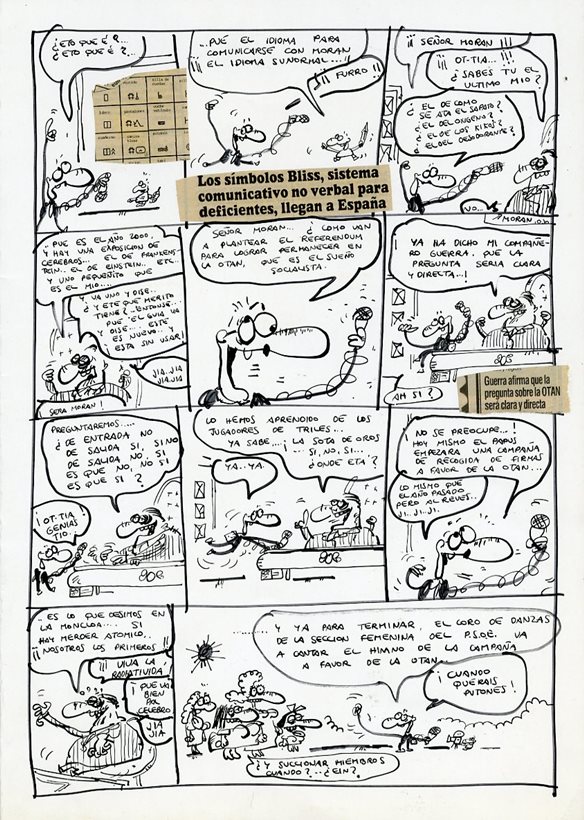 ¿ETO QUE É?...
¿ETO QUE É?...
...PUÉ EL IDIOMA PARA
COMUNICARSE CON MORAN
EL IDIOMA SUNORMAL...!!!
¡¡FURRO!!
¡¡¡SEÑOR MORAN!!!
¡¡¡OT-TIA...!!!
¿SABES TU EL
ULTIMO MIO?
¿EL DE COMO
SE ATA EL SAPATO?
¿EL DEL ONGENO?
¿EL DE LOS KIKOS?
¿EL DEL DEJODORANTE?
NO...
Los símbolos Bliss, sistema
comunicativo no verbal para
deficientes, llegan a España
...PUE ES EL AÑO 2000,
Y HAY UNA EXPOSICION DE
CEREBROS... EL DE FRANKENS-
TEIN.. EL DE EINSTEIN.. ETC..
Y UNO PEQUEÑITO QUE
ES EL MIO...
Y VA UNO Y DISE..
¿Y ETE QUE MERITO
TIENE?..
PUE EL GUIA VA
Y DISE... ESTE
ES NUEVO.. Y
ESTA SIN USAR!
JIA.. JIA
JIA JIA
SERA MORAN!
SEÑOR MORAN... ¿COMO VAN
A PLANTEAR EL REFERENDUM
PARA LOGRAR PERMANECER EN
LA OTAN, QUE ES EL SUEÑO
SOCIALISTA.
MORAN...
YA HA DICHO MI COMPAÑE-
RO GUERRA, QUE LA
PREGUNTA SERIA CLARA
Y DIRECTA...!
AH SI?
Guerra afirma que la
pregunta sobre la OTAN
será clara y directa
PREGUNTAREMOS....
¿DE ENTRADA NO
DE SALIDA SI, SI NO
DE SALIDA NO, SI
ES QUE NO, NO SI
ES QUE SI?
¡OT-TIA
GENIAS
TIO
LO HEMOS APRENDIDO DE LOS
JUGADORES DE TRILES...
YA SABE...¡LA SOTA DE OROS
...SI, NO, SI...
¿ONDE ETA?
YA..YA.
NO SE PREOCUPE..!
HOY MISMO EL PAPUS
EMPEZARA UNA CAMPAÑA
DE RECOGIDA DE FIRMAS
A FAVOR DE LA OTAN...
LO MISMO QUE
EL AÑO PASADO
PERO AL REVES..
JI..JI..JI.
..ES LO QUE DESIMOS EN
LA MONCLOA.... SI
HAY MERDER ATOMICO..
¡¡¡NOSOTROS LOS PRIMEROS!!
¡¡¡VIVA LA
RADIATIVIDA
¡QUE VA
BIEN
POL
CELEBRO
JIA
JIA
Y YA PARA TERMINAR, EL CORO DE DANZAS
DE LA SECCION FEMENINA DEL P.S.O.E. VA
A CANTAR EL HIMNO DE LA CAMPAÑA
A FAVOR DE LA OTAN..
¡CUANDO
QUERAIS
PUTONES!
¿Y SUCCIONAR MIEMBROS
CUANDO?..¿EIN?